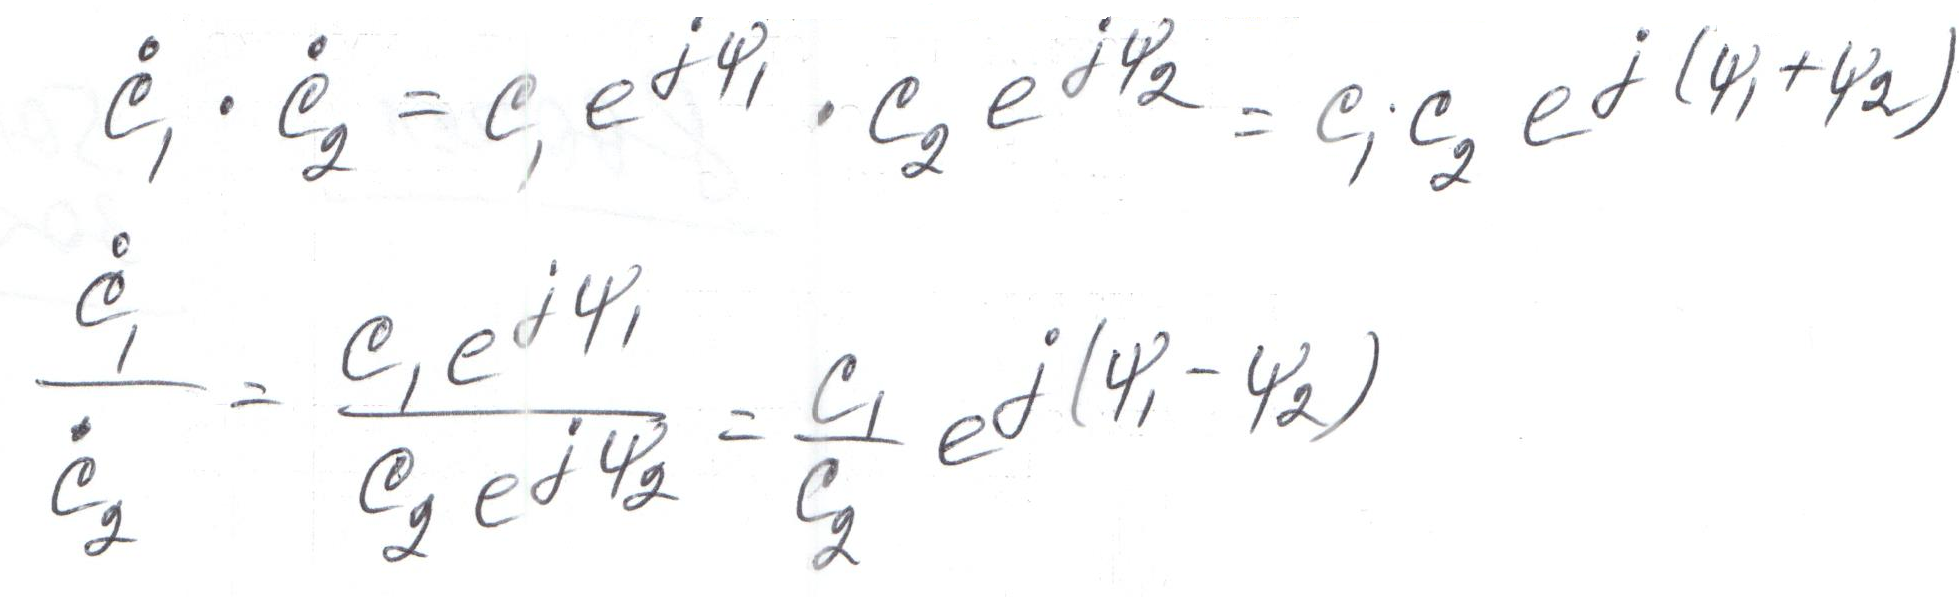 Ċ₁ · Ċ₂ = C₁ e^{jψ₁} · C₂ e^{jψ₂} = C₁·C₂ e^{j(ψ₁+ψ₂)}
Ċ₁/Ċ₂ = C₁ e^{jψ₁}/C₂ e^{jψ₂} = C₁/C₂ e^{j(ψ₁-ψ₂)}